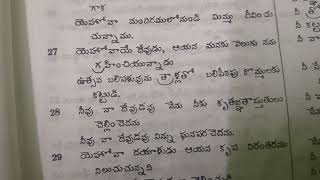 గాక
యెహోవా మందిరములోనుండి మిమ్ము దీవించు
చున్నాము.
27 యెహోవాయే దేవుడు, ఆయన మనకు వెలుగు నను
గ్రహించియున్నాడు
ఉత్సవ బలిపశువును త్రాళ్లతో బలిపీఠపు కొమ్ములకు
కట్టుడి.
28 నీవు నా దేవుడవు నేను నీకు కృతజ్ఞతాస్తుతులు
చెల్లించెదను
నీవు నా దేవుడవు నిన్ను ఘనపరచెదను.
29 యెహోవా దయాళుడు ఆయన కృప నిరంతరము
నిలుచుచున్నది